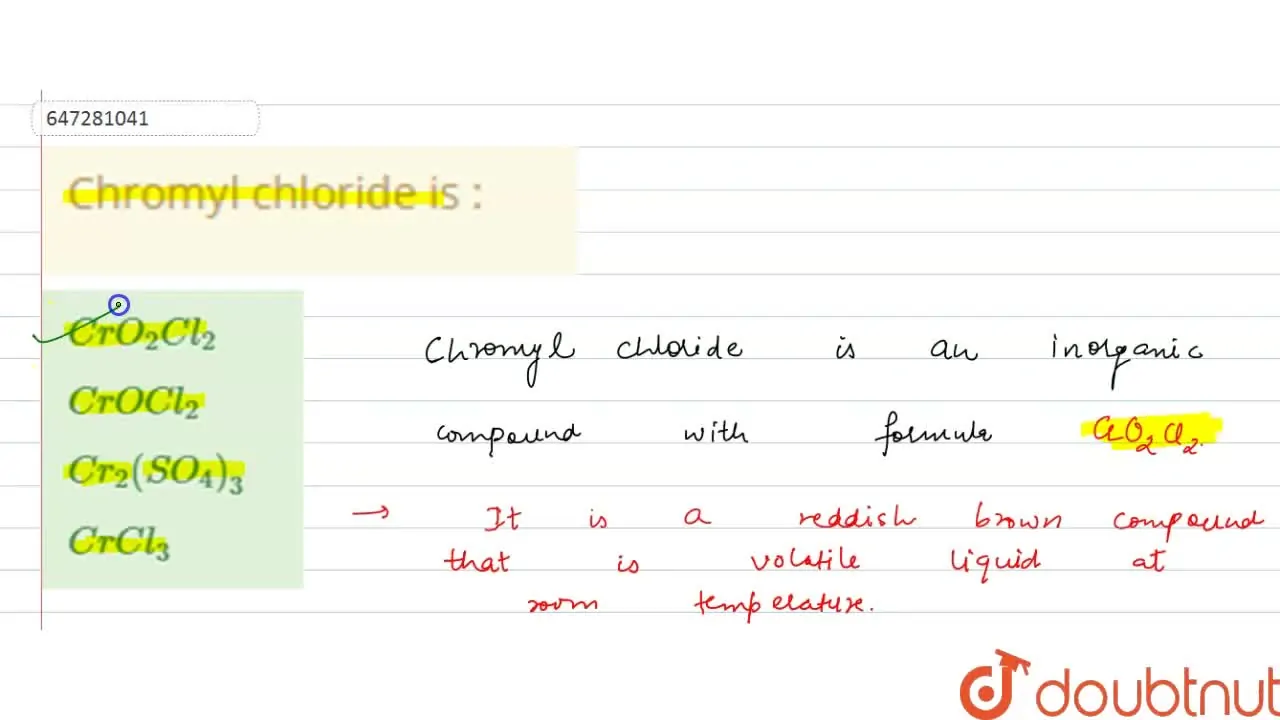 647281041
Chromyl chloride is :
CrO₂Cl₂
CrOCl₂
Cr₂(SO₄)₃
CrCl₃
Chromyl chloride is an inorganic
compound with formula CrO₂Cl₂.
→ It is a reddish brown compound
that is volatile liquid at
room temperature.
doubtnut